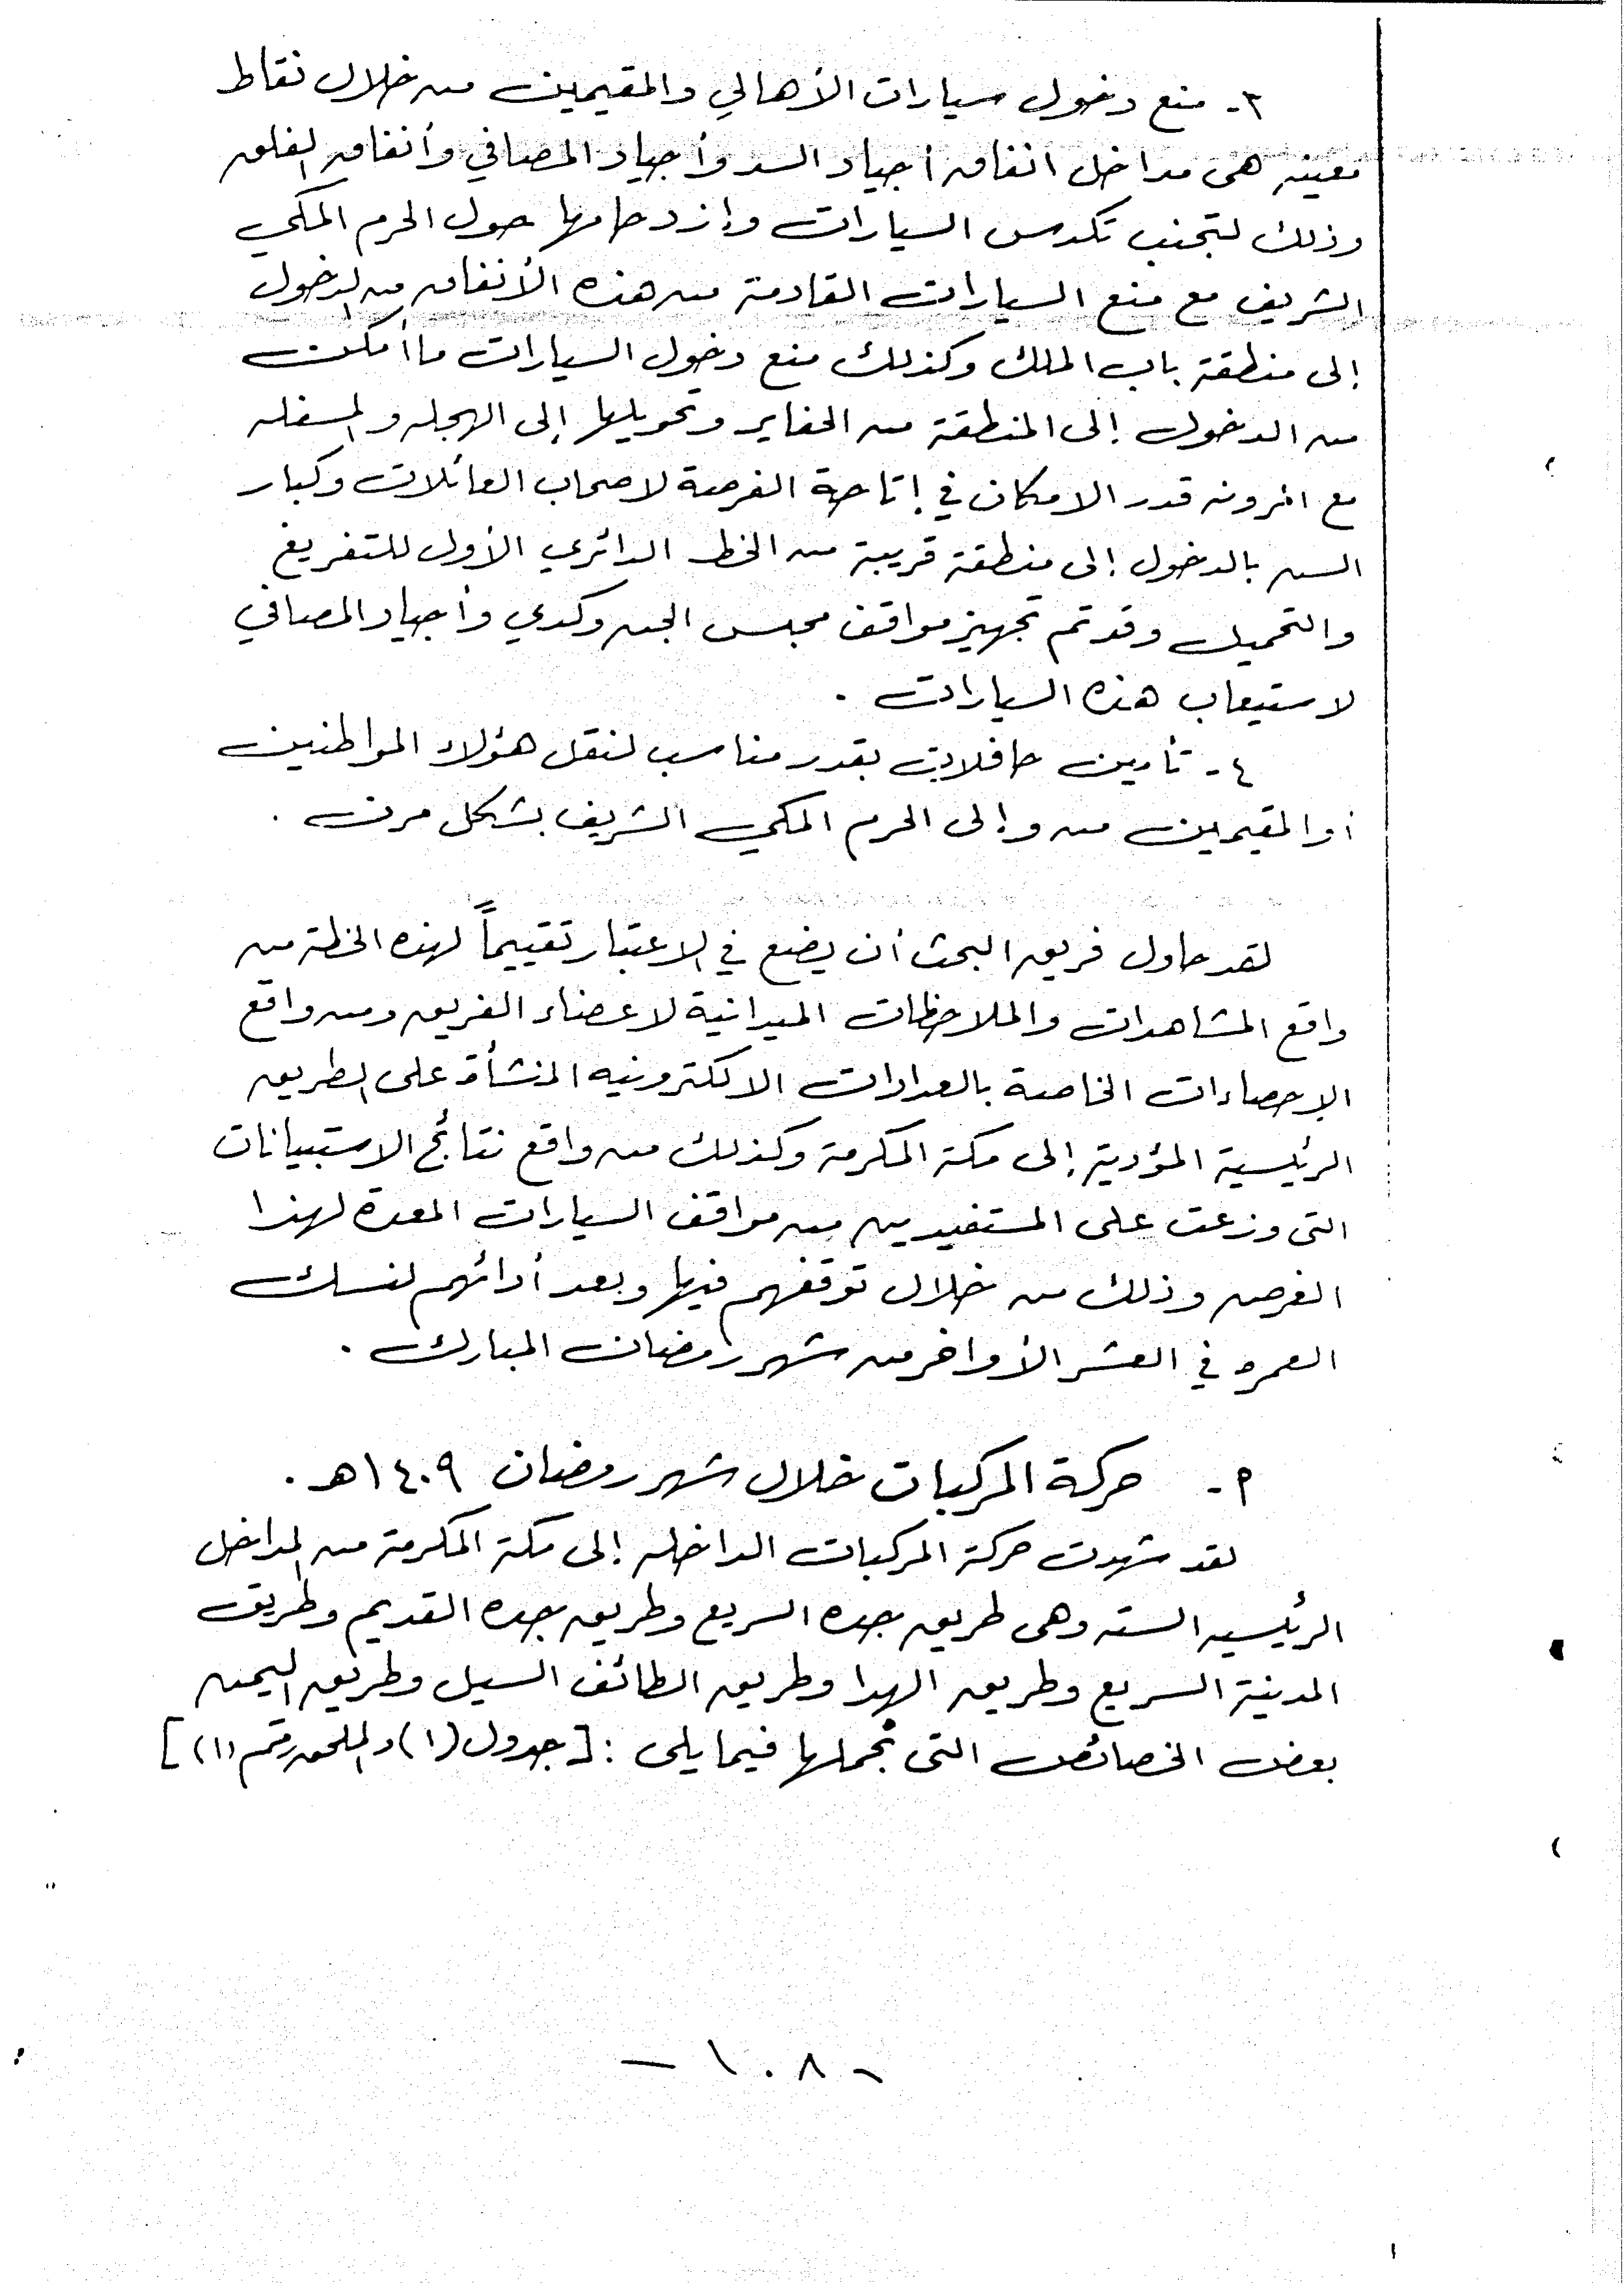 ٣- منع دخول سيارات الأهالي والمقيمين من خلال نقاط
معينه هى مداخل انفاق أجياد السد وأجياد المصافي وأنفاق الفلق
وذلك لتجنب تكدس السيارات وازدحامها حول الحرم المكي
الشريف مع منع السيارات القادمة من هذه الأنفاق من الدخول
إلى منطقة باب الملك وكذلك منع دخول السيارات ما أمكن
من الدخول إلى المنطقة من الحفاير وتحويلها إلى الهجله والمسفله
مع المرونه قدر الامكان في إتاحة الفرصة لاصحاب العائلات وكبار
السن بالدخول إلى منطقة قريبة من الخط الدائري الأول للتفريغ
والتحميل وقد تم تجهيز مواقف مجلس الجن وكدي وأجياد المصافي
لاستيعاب هذه السيارات .
٤- تأمين حافلات بقدر مناسب لنقل هؤلاء المواطنين
أو المقيمين من وإلى الحرم المكي الشريف بشكل مرن .
لقد حاول فريق البحث أن يضع في الاعتبار تقييماً لهذه الخطة من
واقع المشاهدات والملاحظات الميدانية لاعضاء الفريق ومن واقع
الإحصاءات الخاصة بالعدادات الالكترونيه المنشأة على الطريق
الرئيسية المؤدية إلى مكة المكرمة وكذلك من واقع نتائج الاستبيانات
التى وزعت على المستفيدين من مواقف السيارات المعدة لهذا
الغرض وذلك من خلال توقفهم فيها وبعد أدائهم لنسك
العمره في العشر الأواخر من شهر رمضان المبارك .
٢- حركة المركبات خلال شهر رمضان ١٤٠٩هـ .
لقد شهدت حركة المركبات الداخله إلى مكة المكرمة من المداخل
الرئيسيه السته وهى طريق جده السريع وطريق جده القديم وطريق
المدينة السريع وطريق الهدا وطريق الطائف السيل وطريق اليمن
بعض الخصائص التى نجملها فيما يلى : [جدول (١) والملحق رقم (١)]
- ١٠٨ -